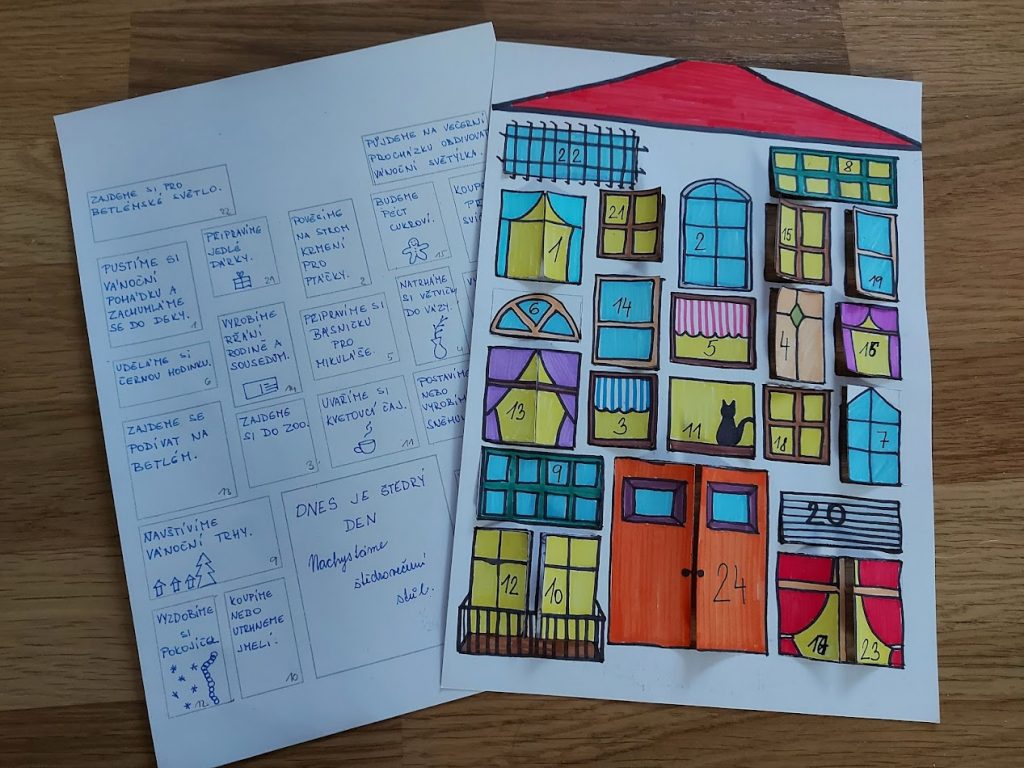 PŮJDEME NA VEČERNÍ
PROCHÁZKU OBDIVOVAT
VÁNOČNÍ SVĚTÝLKA.
ZAJDEME SI PRO
BETLÉMSKÉ SVĚTLO.
22
PUSTÍME SI
VÁNOČNÍ
POHÁDKU A
ZACHUMLÁME
SE DO DEKY.
1
PŘIPRAVÍME
JEDLÉ
DÁRKY.
21
POVĚSÍME
NA STROM
KRMENÍ
PRO
PTÁČKY.
2
BUDEME
PÉCT
CUKROVÍ.
15
KOUPÍ
UDĚLÁME SI
ČERNOU HODINKU.
6
VYROBÍME
PŘÁNÍ
RODINĚ A
SOUSEDŮM.
14
PŘIPRAVÍME SI
BÁSNIČKU
PRO
MIKULÁŠE.
5
NATRHÁME
SI VĚTVIČKY
DO VÁZY.
4
ZAJDEME SE
PODÍVAT NA
BETLÉM.
13
ZAJDEME
SI DO ZOO.
3
UVAŘÍME SI
KVETOUCÍ ČAJ.
11
POSTAVÍME
NEBO
VYROBÍM
SNĚHU
NAVŠTÍVÍME
VÁNOČNÍ TRHY.
9
DNES JE ŠTĚDRÝ
DEN
Nachystáme
štědrovečerní
stůl.
VYZDOBÍME
SI
POKOJÍČEK
12
KOUPÍME
NEBO
UTRHNEME
JMELÍ.
10
22
8
1
21
2
15
19
6
14
5
4
13
3
11
18
7
9
20
12
10
24
23